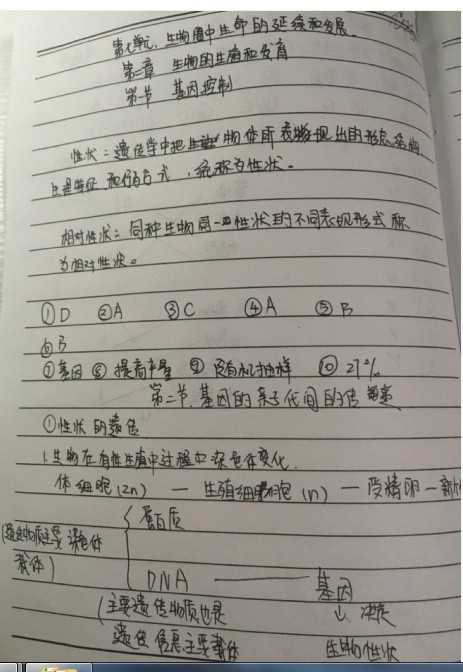 第七单元. 生物圈中生命的延续和发展.
第二章 生物的生殖和发育
第一节 基因控制
性状：遗传学中把生物体所表现出的形态结构
生理特征和行为方式，统称为性状。
相对性状：同种生物同一性状的不同表现形式称
为相对性状。
①D ②A ③C ④A ⑤B
⑥B
⑦基因 ⑧提高产量 ⑨随机抽样 ⑩27%
第二节.基因的亲子代间的传递
①性状的遗传
1.生物在有性生殖中过程中染色体变化.
体细胞(2n) — 生殖细胞(n) — 受精卵 — 新
蛋白质
(遗传物质主要 染色体
载体)
DNA —— 基因
(主要遗传物质也是 ↓决定
遗传信息主要载体 生物性状